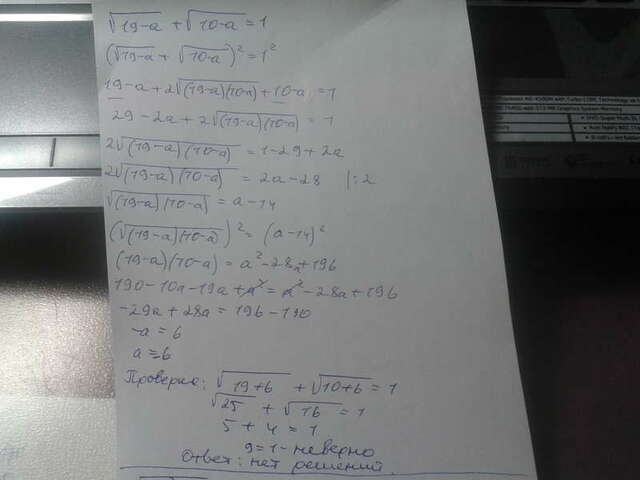 √19-a + √10-a = 1
(√19-a + √10-a)² = 1²
19-a + 2√(19-a)(10-a) + 10-a = 1
29 - 2a + 2√(19-a)(10-a) = 1
2√(19-a)(10-a) = 1-29+2a
2√(19-a)(10-a) = 2a-28 |:2
√(19-a)(10-a) = a-14
(√(19-a)(10-a))² = (a-14)²
(19-a)(10-a) = a²-28a+196
190-10a-19a+a² = a²-28a+196
-29a+28a = 196-190
-a = 6
a = -6
Проверка: √19+6 + √10+6 = 1
√25 + √16 = 1
5 + 4 = 1
9 = 1 - неверно
Ответ: нет решений.